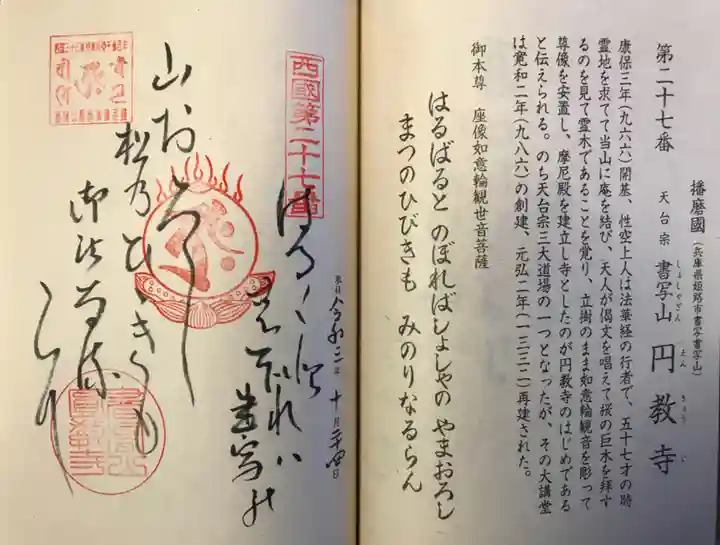 第二十七番
播磨國(兵庫県姫路市書写書写山)
天台宗 書写山 円教寺
しょしゃざん えんきょうじ
康保三年(九六六)開基、性空上人は法華経の行者で、五十七才の時
霊地を求てて当山に庵を結び、天人が偈文を唱えて桜の巨木を拝す
るのを見て霊木であることを覚り、立樹のまま如意輪観音を彫って
尊像を安置し、摩尼殿を建立し寺としたのが円教寺のはじめである
と伝えられる。のち天台宗三大道場の一つとなったが、その大講堂
は寛和二年(九八六)の創建、元弘二年(一三三二)再建された。
御本尊 座像如意輪観世音菩薩
はるばると のぼればしょしゃの やまおろし
まつのひびきも みのりなるらん
西國第二十七番
はる〳〵と
のぼれハ
書写の
山おろし
松乃ひゝきも
御法なるらん